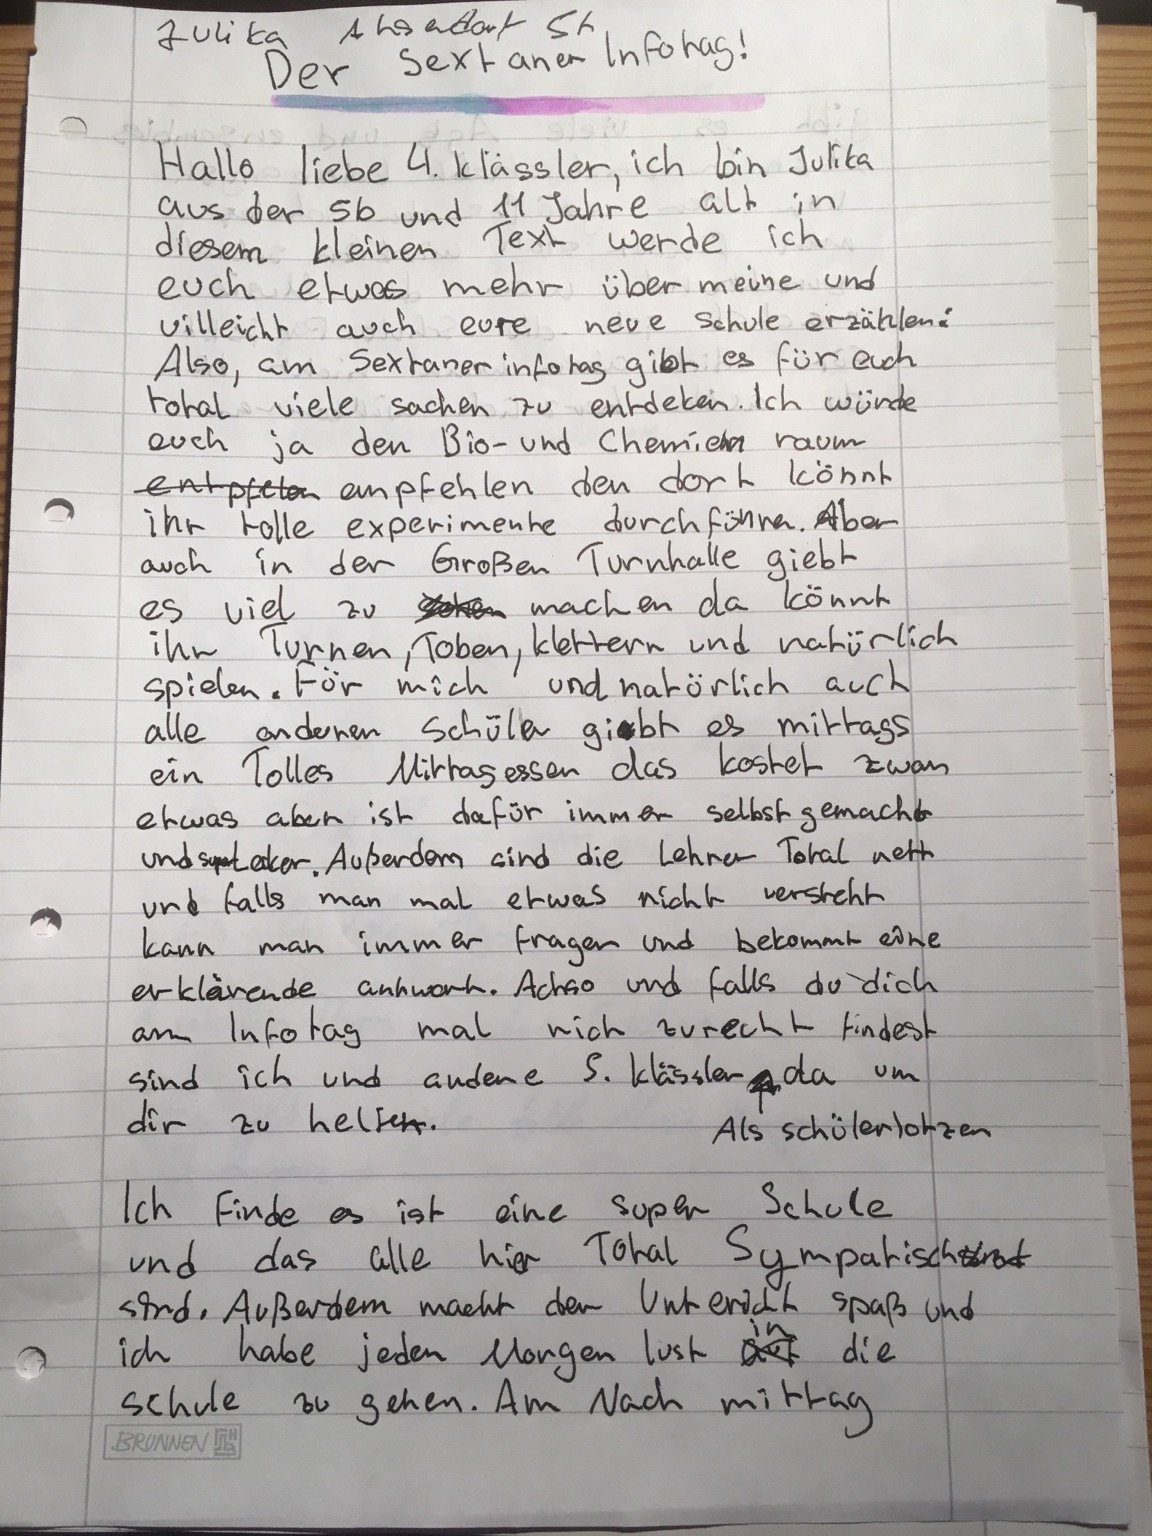 Julika 5b
Der Sextaner Infotag!
Hallo liebe 4. klässler, ich bin Julika
aus der 5b und 11 Jahre alt in
diesem kleinen Text werde ich
euch etwas mehr über meine und
villeicht auch eure neue Schule erzählen:
Also, am Sextanerinfotag gibt es für euch
total viele sachen zu entdeken. Ich würde
euch ja den Bio- und Chemie raum
empfehlen den dort könnt
ihr tolle experimente durchführen. Aber
auch in der Großen Turnhalle giebt
es viel zu machen da könnt
ihr Turnen, Toben, klettern und natürlich
spielen. Für mich und natürlich auch
alle anderen Schüler giebt es mittags
ein Tolles Mittagessen das kostet zwar
etwas aber ist dafür immer selbst gemacht
und Leker. Außerdem sind die Lehrer Total nett
und falls man mal etwas nicht versteht
kann man immer fragen und bekommt eine
erklärende antwort. Achso und falls du dich
am Infotag mal nich zurecht findest
sind ich und andere 5. klässler da um
dir zu helfen. Als schülerlotzen
Ich Finde es ist eine super Schule
und das alle hier Total Sympatisch
sind. Außerdem macht der Untericht spaß und
ich habe jeden Morgen lust in die
schule zu gehen. Am Nach mittag
BRUNNEN